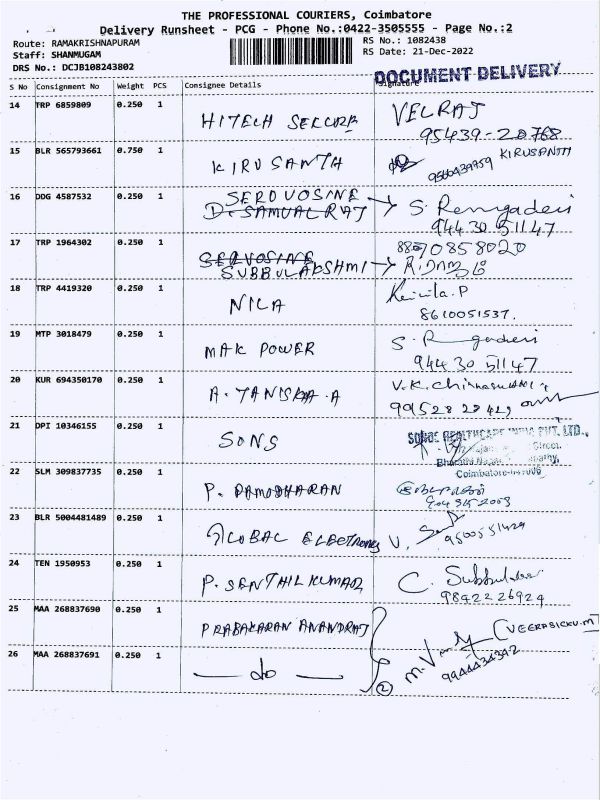 THE PROFESSIONAL COURIERS, Coimbatore
Delivery Runsheet - PCG - Phone No.:0422-3505555 - Page No.:2
Route: RAMAKRISHNAPURAM
RS No.: 1082438
Staff: SHANMUGAM
RS Date: 21-Dec-2022
DRS No.: DCJB108243802
DOCUMENT DELIVERY
S No Consignment No Weight PCS Consignee Details Signature
14 TRP 6859809 0.250 1 HITECH SECURE VELRAJ
95439-20768
15 BLR 565793661 0.750 1 KIRUSANTH KIRUSANTH
9566439759
16 DDG 4587532 0.250 1 SEROVOSINE
D. SAMUAL RAJ S. Rengadevi
94430 51147
17 TRP 1964302 0.250 1 8870858020
SEROVOSINE
SUBBULAKSHMI
18 TRP 4419320 0.250 1 NILA
8610051537.
19 MTP 3018479 0.250 1 MAK POWER
94430 51147
20 KUR 694350170 0.250 1 A. TANISKA . A V.K. Chinnaswami
99528 28429
21 DPI 10346155 0.250 1 SONS
HEALTHCARE INDIA PVT. LTD.,
Street,
22 SLM 309837735 0.250 1 P. DAMODHARAN
23 BLR 5004481489 0.250 1 GLOBAL ELECTRONICS V.
9500551429
24 TEN 1950953 0.250 1 P. SENTHILKUMAR C. Subbulakshmi
9842226929
25 MAA 268837690 0.250 1 PRABAKARAN ANANDRAJ (VEERASICKU.M)
26 MAA 268837691 0.250 1 — do — 2
9944434342